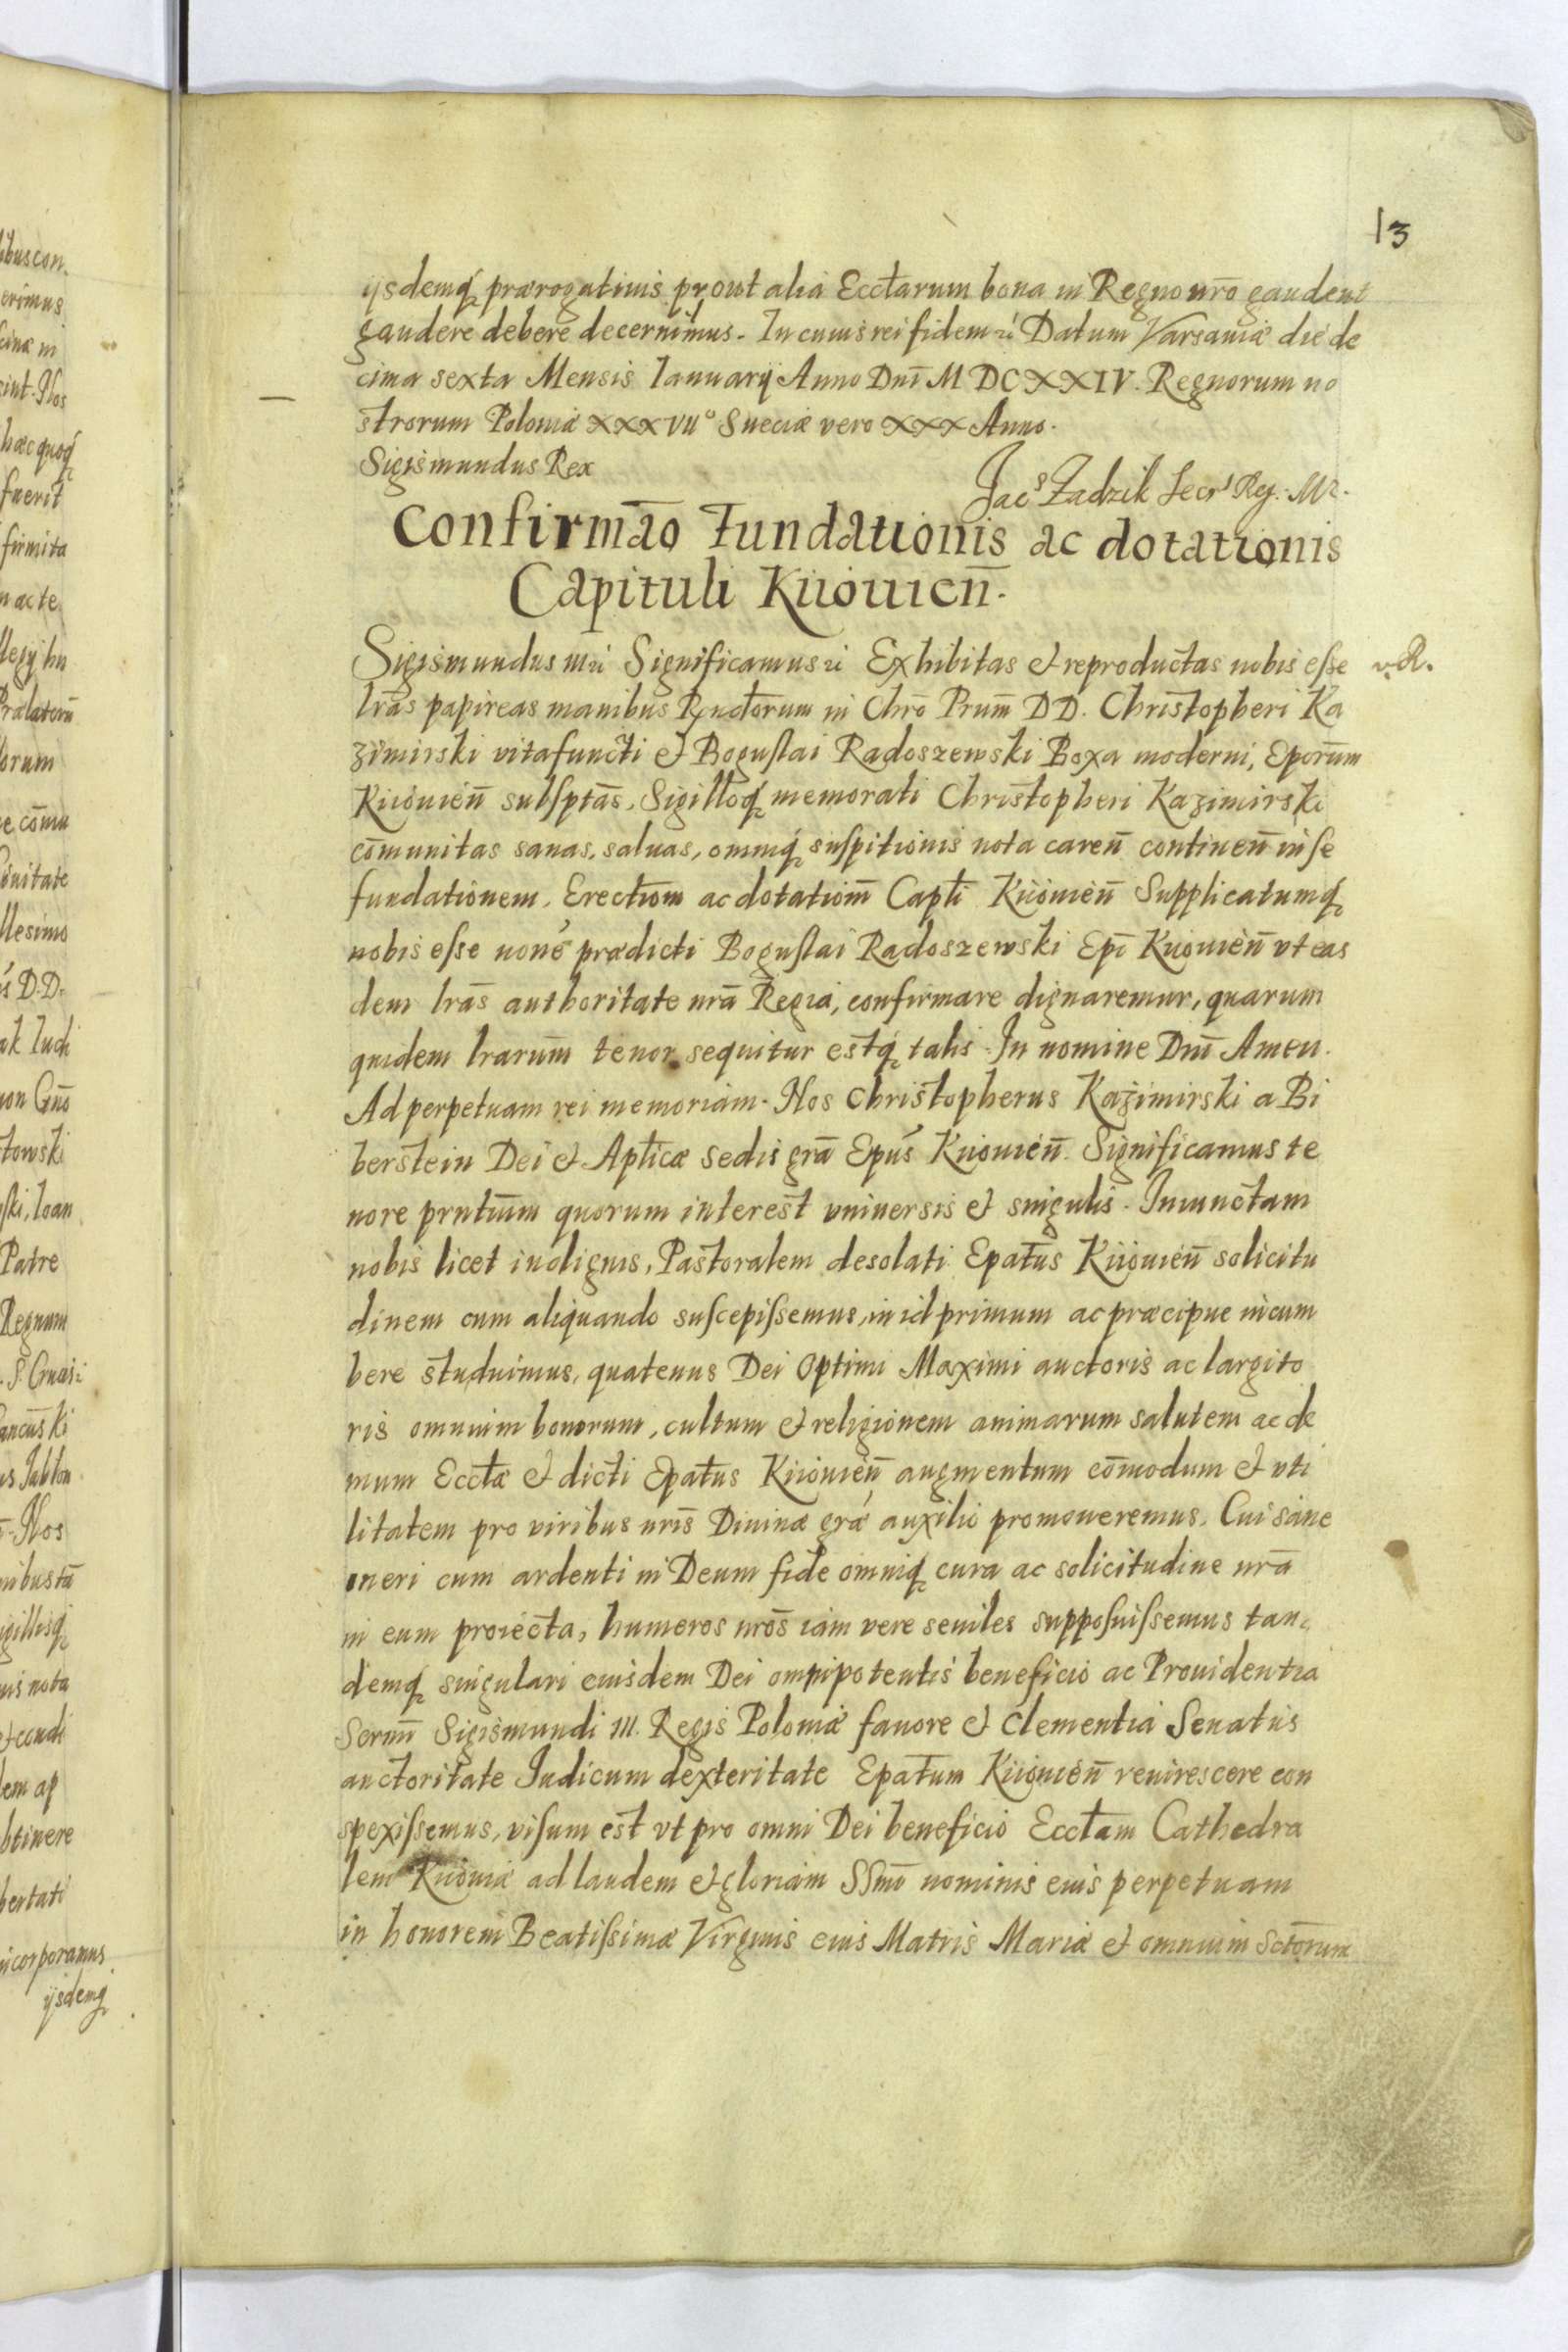 13
ijsdemq́ prærogatiuis prout alia Ecctarum bona in Regno nr̄o gaudent
gaudere debere decernimus. In cuius rei fidem ꝛć Datum Varsauiæ die de
cima sexta Mensis Ianuarij Anno Dnī M DCXXIV. Regnorum no
strorum Poloniæ XXXVIIº Sueciæ vero XXX Anno.
Sigismundus Rex
Jacs Zadzik Secrs Reg. Mꝛ.
Confirmāo Fundationis ac dotationis
Capituli Kiiouien̄.
Sigismundus IIIꝛć Significamus ꝛć Exhibitas et reproductas nobis eſse
lr̄as papireas manibus Rndorum in Chrō Prum̄ DD. Christopheri Ka
zimirski vitafuncti et Boguſlai Radoszewski Boxa moderni, Eporūm
Kiiouien̄ subſptās, Sigilloq́ memorati Christopheri Kazimirski
cōmunitas sanas, saluas, omniq́ suſpitionis nota caren̄ continen̄ in ſe
fundationem, Erectiom ac dotatiom̄ Capłi Kiiouien̄ Supplicatumq́
nobis eſse noné prædicti Boguſlai Radoszewski Epī Kiiouien̄ vt eas
dem lr̄as authoritate nrā Regia, confirmare dignaremur, quarum
quidem lrarum̄ tenor sequitur estq́ talis. In nomine Dnī Amen.
Ad perpetuam rei memoriam. Nos Christopherus Kazimirski a Bi
berstein Dei et Aplicæ sedis grā Epus Kiiouien̄. Significamus te
nore prntium̄ quorum interest vniuersis et singulis. Iniunctam
nobis licet indignis, Pastoralem desolati Epatus Kiiouien̄ solicitu
dinem cum aliquando suſcepiſsemus, in id primum ac præcipue incum
bere studuimus, quatenus Dei Optimi Maximi auctoris ac largito
ris omnium bonorum, cultum et religionem animarum salutem ac de
mum Ecctæ et dicti Epatus Kiiouien̄ augmentum cōmodum et vti
litatem pro viribus nrīs Diuinæ græ auxilio promoueremus. Cui sane
oneri cum ardenti in Deum fide omniq́ cura ac solicitudine nrā
in eum proiecta, humeros nrōs iam vere seniles suppoſuiſsemus tan
demq́ singulari eiusdem Dei omnipotentis beneficio ac Prouidentia
Sermī Sigismundi III. Regis Poloniæ fauore et clementia Senatus
auctoritate Iudicum dexteritate Epatum Kiiouien̄ reuirescere con
spexiſsemus, viſum est vt pro omni Dei beneficio Ecctam Cathedra
lem Kiiouiæ ad laudem et gloriam SSmī nominis eius perpetuam
in honorem Beatiſsimæ Virginis eius Matris Mariæ et omnium Sctorum